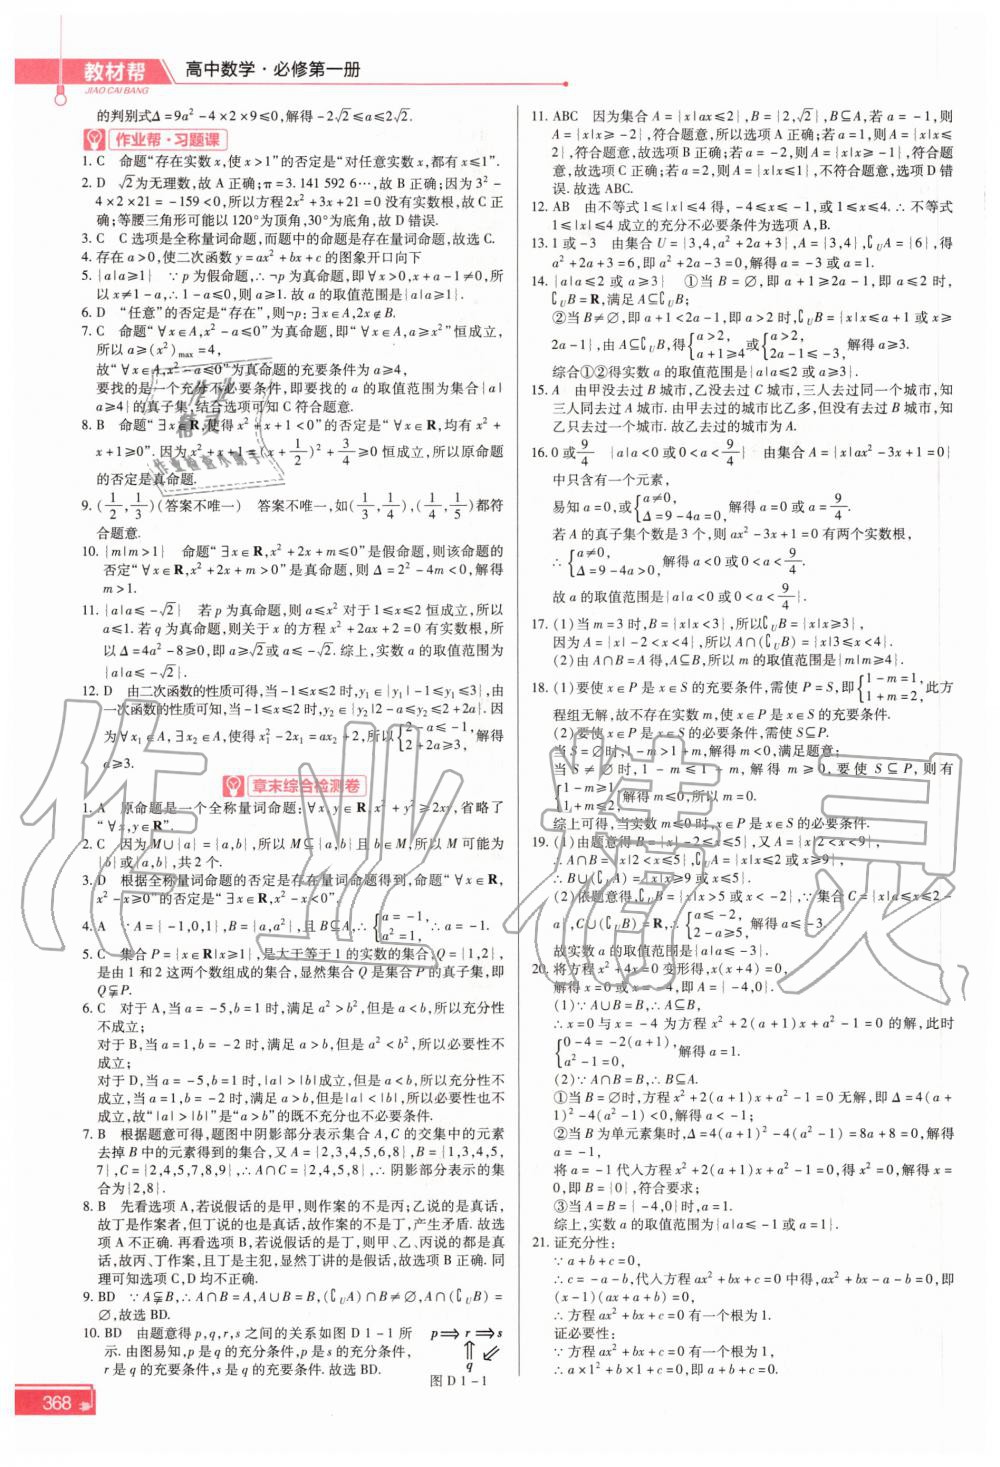 教材帮
JIAO CAI BANG
高中数学·必修第一册
的判别式Δ=9a²-4×2×9≤0,解得-2√2≤a≤2√2.
作业帮·习题课
1. C 命题“存在实数x,使x>1”的否定是“对任意实数x,都有x≤1”.
2. D √2为无理数,故A正确;π=3.141 592 6…,故B正确;因为3²-
4×2×21=-159<0,所以方程2x²+3x+21=0没有实数根,故C正
确;等腰三角形可能以120°为顶角,30°为底角,故D错误.
3. C C选项是全称量词命题,而题中的命题是存在量词命题,故选C.
4. 存在a>0,使二次函数y=ax²+bx+c的图象开口向下
5. {a|a≥1} ∵p为假命题,∴¬p为真命题,即∀x>0,x+a-1≠0,所
以x≠1-a,∴1-a≤0,则a≥1.故a的取值范围是{a|a≥1}.
6. D “任意”的否定是“存在”,则¬p:∃x∈A,2x∉B.
7. C 命题“∀x∈A,x²-a≤0”为真命题,即“∀x∈A,a≥x²”恒成立,
所以a≥(x²)max=4,
故“∀x∈A,x²-a≤0”为真命题的充要条件为a≥4,
要找的是一个充分不必要条件,即要找的a的取值范围为集合{a|
a≥4}的真子集,结合选项可知C符合题意.
8. B 命题“∃x∈R,使得x²+x+1<0”的否定是“∀x∈R,均有x²+
x+1≥0”.因为x²+x+1=(x+1/2)²+3/4≥0恒成立,所以原命题
的否定是真命题.
9. (1/2,1/3)(答案不唯一) 答案不唯一,如(1/3,1/4),(1/4,1/5)都符
合题意.
10. {m|m>1} 命题“∃x∈R,x²+2x+m≤0”是假命题,则该命题的
否定“∀x∈R,x²+2x+m>0”是真命题,则Δ=2²-4m<0,解得
m>1.
11. {a|a≤-√2} 若p为真命题,则a≤x²对于1≤x≤2恒成立,所以
a≤1.若q为真命题,则关于x的方程x²+2ax+2=0有实数根,所
以Δ=4a²-8≥0,即a≥√2或a≤-√2.综上,实数a的取值范围为
{a|a≤-√2}.
12. D 由二次函数的性质可得,当-1≤x≤2时,y₁∈{y₁|-1≤y₁≤3},由
一次函数的性质可知,当-1≤x≤2时,y₂∈{y₂|2-a≤y₂≤2+2a}.因
为∀x₁∈A,∃x₂∈A,使得x₁²-2x₁=ax₂+2,所以{2-a≤-1, 2+2a≥3, 解得
a≥3.
章末综合检测卷
1. A 原命题是一个全称量词命题:∀x,y∈R,x²+y²≥2xy,省略了
“∀x,y∈R”.
2. C 因为M∪{a}={a,b},所以M⊆{a,b}且b∈M,所以M可能为
{b}或{a,b},共2个.
3. D 根据全称量词命题的否定是存在量词命题得到,命题“∀x∈R,
x²-x≥0”的否定是“∃x∈R,x²-x<0”.
4. A ∵A={-1,0,1},B={a,a²},且B⊆A,∴{a=-1, a²=1, ∴a=-1.
5. C 集合P={x∈R|x≥1},是大于等于1的实数的集合,Q={1,2},
是由1和2这两个数组成的集合,显然集合Q是集合P的真子集,即
Q⫋P.
6. C 对于A,当a=-5,b=1时,满足a²>b²,但是a<b,所以充分性
不成立;
对于B,当a=1,b=-2时,满足a>b,但是a²<b²,所以必要性不
成立;
对于D,当a=-5,b=1时,|a|>|b|成立,但是a<b,所以充分性不
成立,当a=1,b=-2时,满足a>b,但是|a|<|b|,所以必要性也不
成立,故“|a|>|b|”是“a>b”的既不充分也不必要条件.
7. B 根据题意可得,题图中阴影部分表示集合A,C的交集中的元素
去掉B中的元素得到的集合,又A={2,3,4,5,6,8},B={1,3,4,5,
7},C={2,4,5,7,8,9},∴A∩C={2,4,5,8},∴阴影部分表示的集
合为{2,8}.
8. B 先看选项A,若说假话的是甲,则作案的不是丙;乙说的是真话,
故丁是作案者,但丁说的也是真话,故作案的不是丁,产生矛盾.故选
项A不正确.再看选项B,若说假话的是丁,则甲、乙、丙说的都是真
话,故丙、丁作案,且丁是主犯,显然丁讲的是假话,故选项B正确.同
理可知选项C,D均不正确.
9. BD ∵A⫋B,∴A∩B=A,A∪B=B,(∁UA)∩B≠∅,A∩(∁UB)=
∅,故选BD.
10. BD 由题意得p,q,r,s之间的关系如图D1-1所
示.由图易知,p是q的充分条件,p是s的充分条件,
r是q的充要条件,s是q的充要条件.故选BD.
p⇒r⇒s
q
图D1-1
368
11. ABC 因为集合A={x|ax≤2},B={2,√2},B⊆A,若a=-1,则
A={x|x≥-2},符合题意,所以选项A正确;若a=-2,则A={x|x≥
-1},符合题意,故选项B正确;若a=1,则A={x|x≤2},符合题
意,故选项C正确;若a=2,则A={x|x≤1},不符合题意,选项D错
误.故选ABC.
12. AB 由不等式1≤|x|≤4得,-4≤x≤-1,或1≤x≤4.∴不等式
1≤|x|≤4成立的充分不必要条件为选项A,B.
13. 1或-3 由集合U={3,4,a²+2a+3},A={3,4},∁UA={6},得
a²+2a+3=6,即a²+2a-3=0,解得a=-3或a=1.
14. {a|a≤2或a≥3} ①当B=∅,即a+1≥2a-1,即a≤2时,
∁UB=R,满足A⊆∁UB;
②当B≠∅,即a+1<2a-1,即a>2时,∁UB={x|x≤a+1或x≥
2a-1},由A⊆∁UB,得{a>2, a+1≥4或{a>2, 2a-1≤-3,解得a≥3.
综合①②得实数a的取值范围是{a|a≤2或a≥3}.
15. A 由甲没去过B城市,乙没去过C城市,三人去过同一个城市,知
三人同去过A城市.由甲去过的城市比乙多,但没去过B城市,知
乙只去过一个城市.故乙去过的城市为A.
16. 0或9/4 {a|a<0或0<a<9/4} 由集合A={x|ax²-3x+1=0}
中只含有一个元素,
易知a=0,或{a≠0, Δ=9-4a=0,解得a=0或a=9/4.
若A的真子集个数是3个,则ax²-3x+1=0有两个实数根,
∴{a≠0, Δ=9-4a>0,解得a<0或0<a<9/4.
故a的取值范围是{a|a<0或0<a<9/4}.
17. (1)当m=3时,B={x|x<3},所以∁UB={x|x≥3},
因为A={x|-2<x<4},所以A∩(∁UB)={x|3≤x<4}.
(2)由A∩B=A得,A⊆B,所以m的取值范围是{m|m≥4}.
18. (1)要使x∈P是x∈S的充要条件,需使P=S,即{1-m=1, 1+m=2,此方
程组无解,故不存在实数m,使x∈P是x∈S的充要条件.
(2)要使x∈P是x∈S的必要条件,需使S⊆P.
当S=∅时,1-m>1+m,解得m<0,满足题意;
当S≠∅时,1-m≤1+m,解得m≥0,要使S⊆P,则有
{1-m≥1, 1+m≤2,解得m≤0,所以m=0.
综上可得,当实数m≤0时,x∈P是x∈S的必要条件.
19. (1)由题意得B={x|-2≤x≤5},又A={x|2<x<9},
∴A∩B={x|2<x≤5},∁UA={x|x≤2或x≥9},
∴B∪(∁UA)={x|x≥9或x≤5}.
(2)依题意得,∁UB={x|x>5或x<-2},∵集合C={x|a≤x≤2-
a},C∪(∁UB)=R,∴{a≤-2, 2-a≥5,解得a≤-3.
故实数a的取值范围是{a|a≤-3}.
20. 将方程x²+4x=0变形得,x(x+4)=0,
解得x=0或x=-4,即A={-4,0}.
(1)∵A∪B=B,∴A⊆B,
∴x=0与x=-4为方程x²+2(a+1)x+a²-1=0的解,此时
{0-4=-2(a+1), a²-1=0,解得a=1.
(2)∵A∩B=B,∴B⊆A.
①当B=∅时,方程x²+2(a+1)x+a²-1=0无解,即Δ=4(a+
1)²-4(a²-1)<0,解得a<-1;
②当B为单元素集时,Δ=4(a+1)²-4(a²-1)=8a+8=0,解得
a=-1,
将a=-1代入方程x²+2(a+1)x+a²-1=0,得x²=0,解得x=
0,即B={0},符合要求;
③当A=B={-4,0}时,a=1.
综上,实数a的取值范围是{a|a≤-1或a=1}.
21. 证充分性:
∵a+b+c=0,
∴c=-a-b,代入方程ax²+bx+c=0中得,ax²+bx-a-b=0,即
(x-1)(ax+a+b)=0,
∴方程ax²+bx+c=0有一个根为1.
证必要性:
∵方程ax²+bx+c=0有一个根为1,
∴a×1²+b×1+c=0,即a+b+c=0.
作业精灵